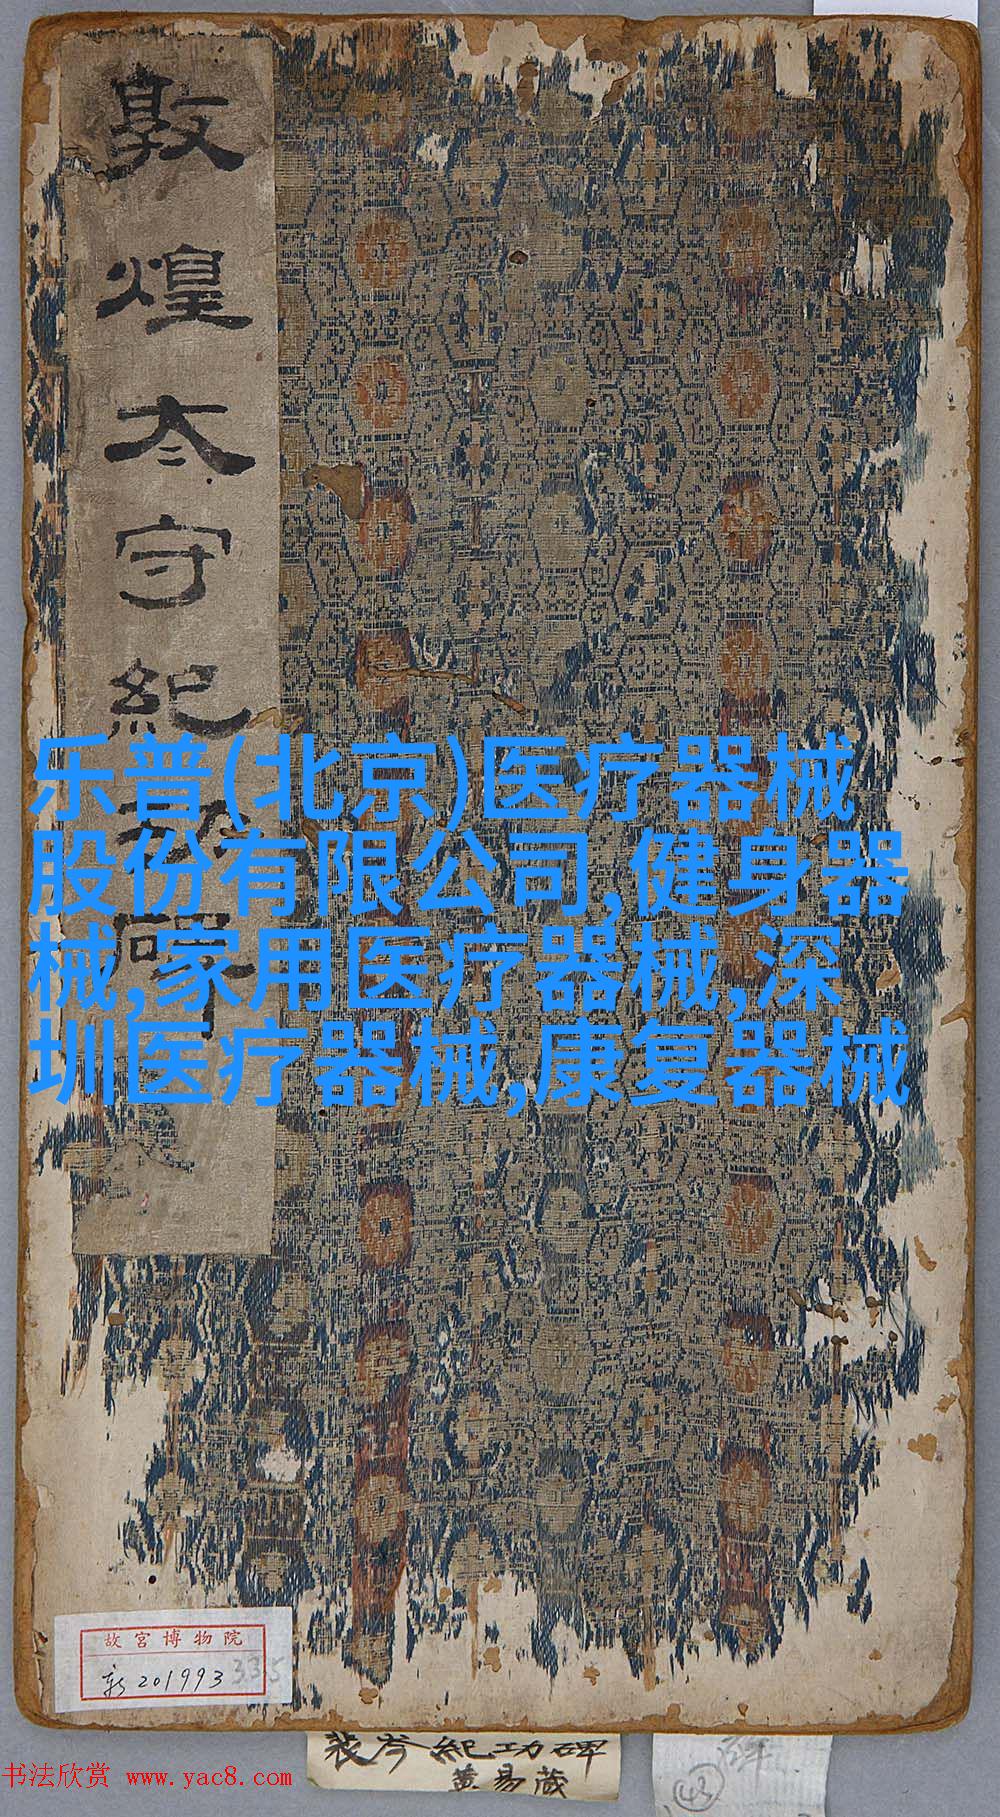 敦煌太守紀功碑
乐普(北京)医疗器械
股份有限公司,健身器
械,家用医疗器械,深
圳医疗器械,康复器械
故宫博物院
新201993
335
裴岑紀功碑
黄易藏
43
书法欣赏 www.yac8.com